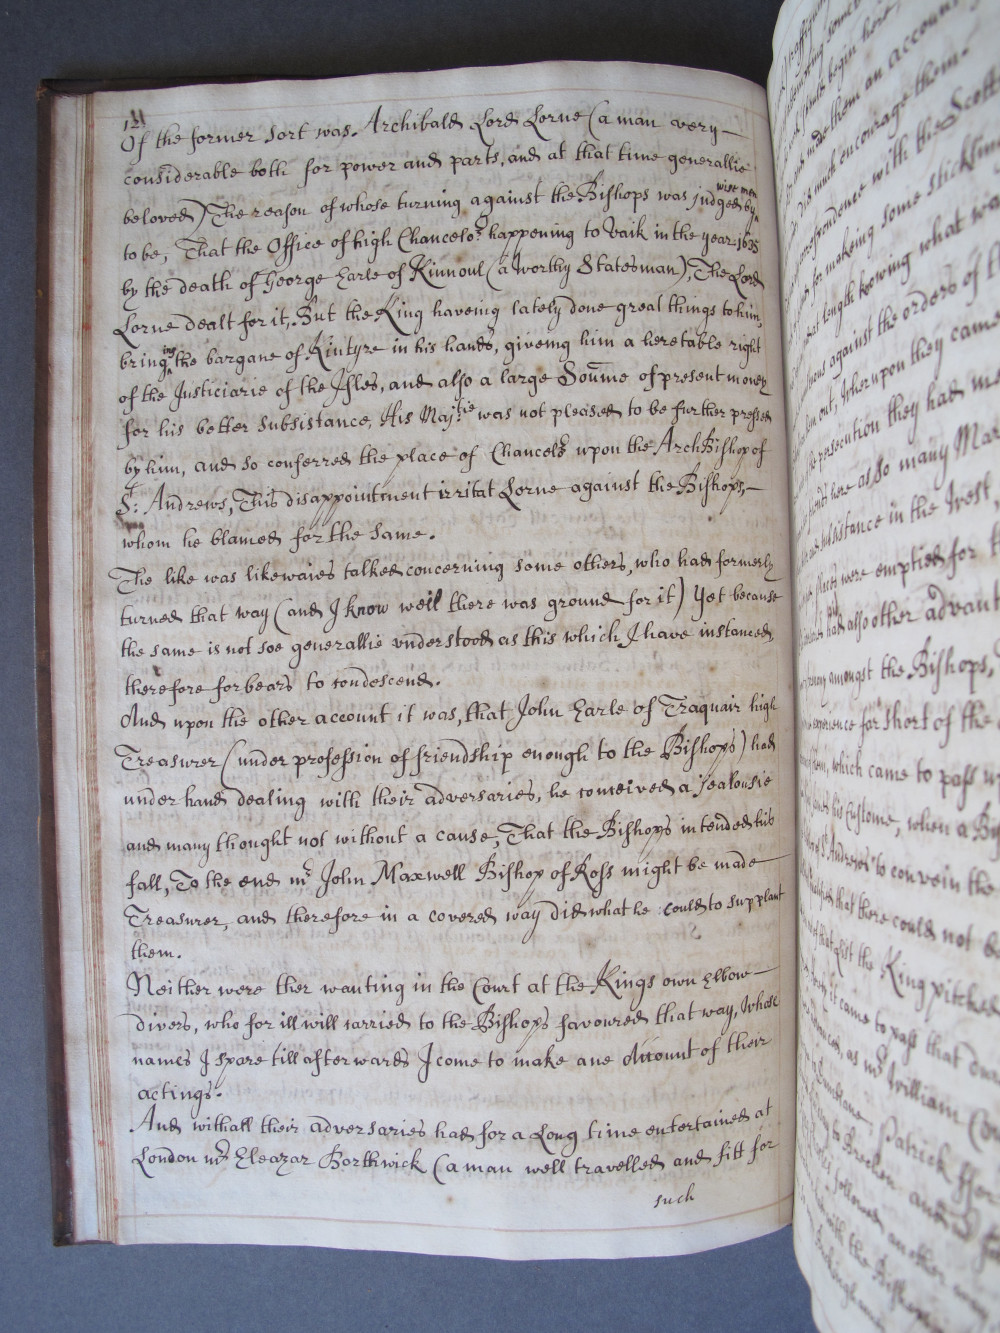 12
Of the former sort was. Archibald Lord Lorne (a man very
considerable both for power and parts, and at that time generallie
beloved) The reason of whose turning against the Bishops was judged by wise men
to be, That the Office of high Chancelor happening to vaik in the year 1635
by the death of George Earle of Kinnoul (a worthy Statesman), The Lord
Lorne dealt for it, But the King haveing lately done great things to him,
bringing the bargane of Kintyre in his hands, giveing him a heretable right
of the Justiciarie of the Isles, and also a large Soume of present money
for his better subsistance, His Majtie was not pleased to be further pressed
by him, and so conferred the place of Chancelor upon the ArchBishop of
St: Andrews, This disappointment irritat Lorne against the Bishops,
whom he blamed for the same.
The like was likewaies talked concerning some others, who had formerly
turned that way (and I know well there was ground for it) Yet because
the same is not soe generallie understood as this which I have instanced,
therefore forbears to condescend.
And upon the other account it was, that John Earle of Traquair high
Treasurer (under profession of friendship enough to the Bishops) had
under hand dealing with their adversaries, he conceived a jealousie
and many thought not without a cause, That the Bishops intended his
fall, To the end mr John Maxwell Bishop of Ross might be made
Treasurer, and therefore in a covered way did what he could to supplant
them.
Neither were ther wanting in the Court at the Kings own Elbow
divers, who for ill will carried to the Bishops favoured that way, whose
names I spare till afterwards I come to make ane Account of their
actings.
And withall their adversaries had for a Long time entertained at
London mr Eleazar Borthwick (a man well travelled and fitt for
such
did much encourage them.
correspondence with the Scott
for makeing some
at length knowing what wa
against the orders of t
out, wherupon they came
persecution they had m
here as so many Mar
subsistance in the West
places were emptied for t
had also other advant
amongst the Bishops,
experience far short of the
them, which came to pass
his Custome, when a Bi
St Andrews to convein the
that there could not b
the King pitched
it came to pass that
as mr William
Patrick
to Brechen and
followed another
with the Bishop